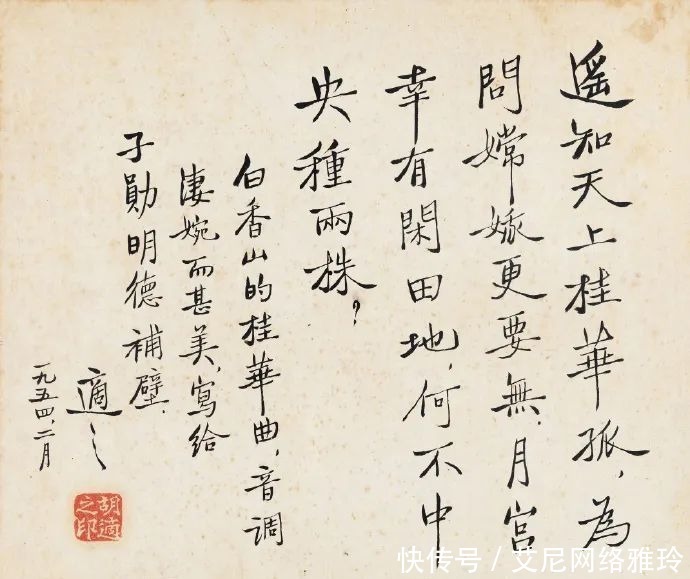 遥知天上桂華孤,為
問嫦娥更要無,月宮
幸有閑田地,何不中
央種兩株?
白香山的桂華曲,音調
淒婉而甚美,寫給
子勛明德補壁.
適之
一九五四,二月
胡適
之印
快传号/艾尼网络雅玲